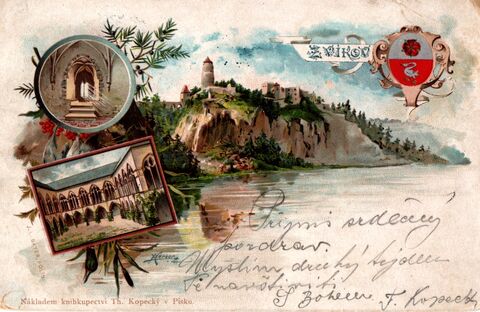 ZVÍKOV
Přijmi srdečný
pozdrav.
Myslím druhý týden
S Bohem. F. Kopecký
Nákladem knihkupectví Th. Kopecký v Písku.